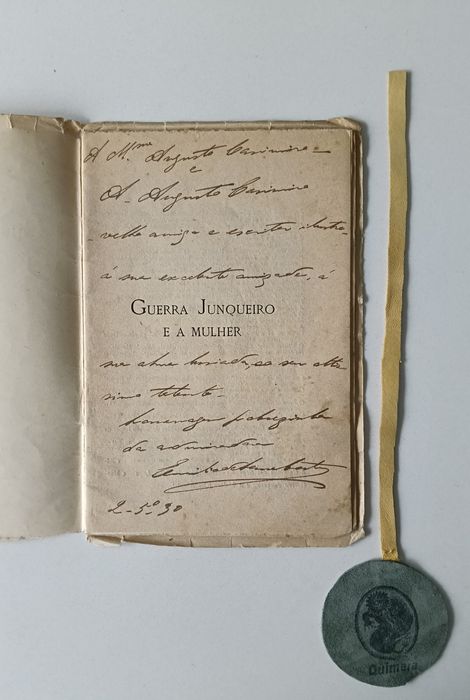 A Mme Augusto Casimiro =
e
A. Augusto Casimiro
velho amigo e escritor ilustre,
á sua excelente amizade, á
GUERRA JUNQUEIRO
E A MULHER
sua alma, ao seu
simo talento
homenagem
da admiradora
2-5º-30
Quimera